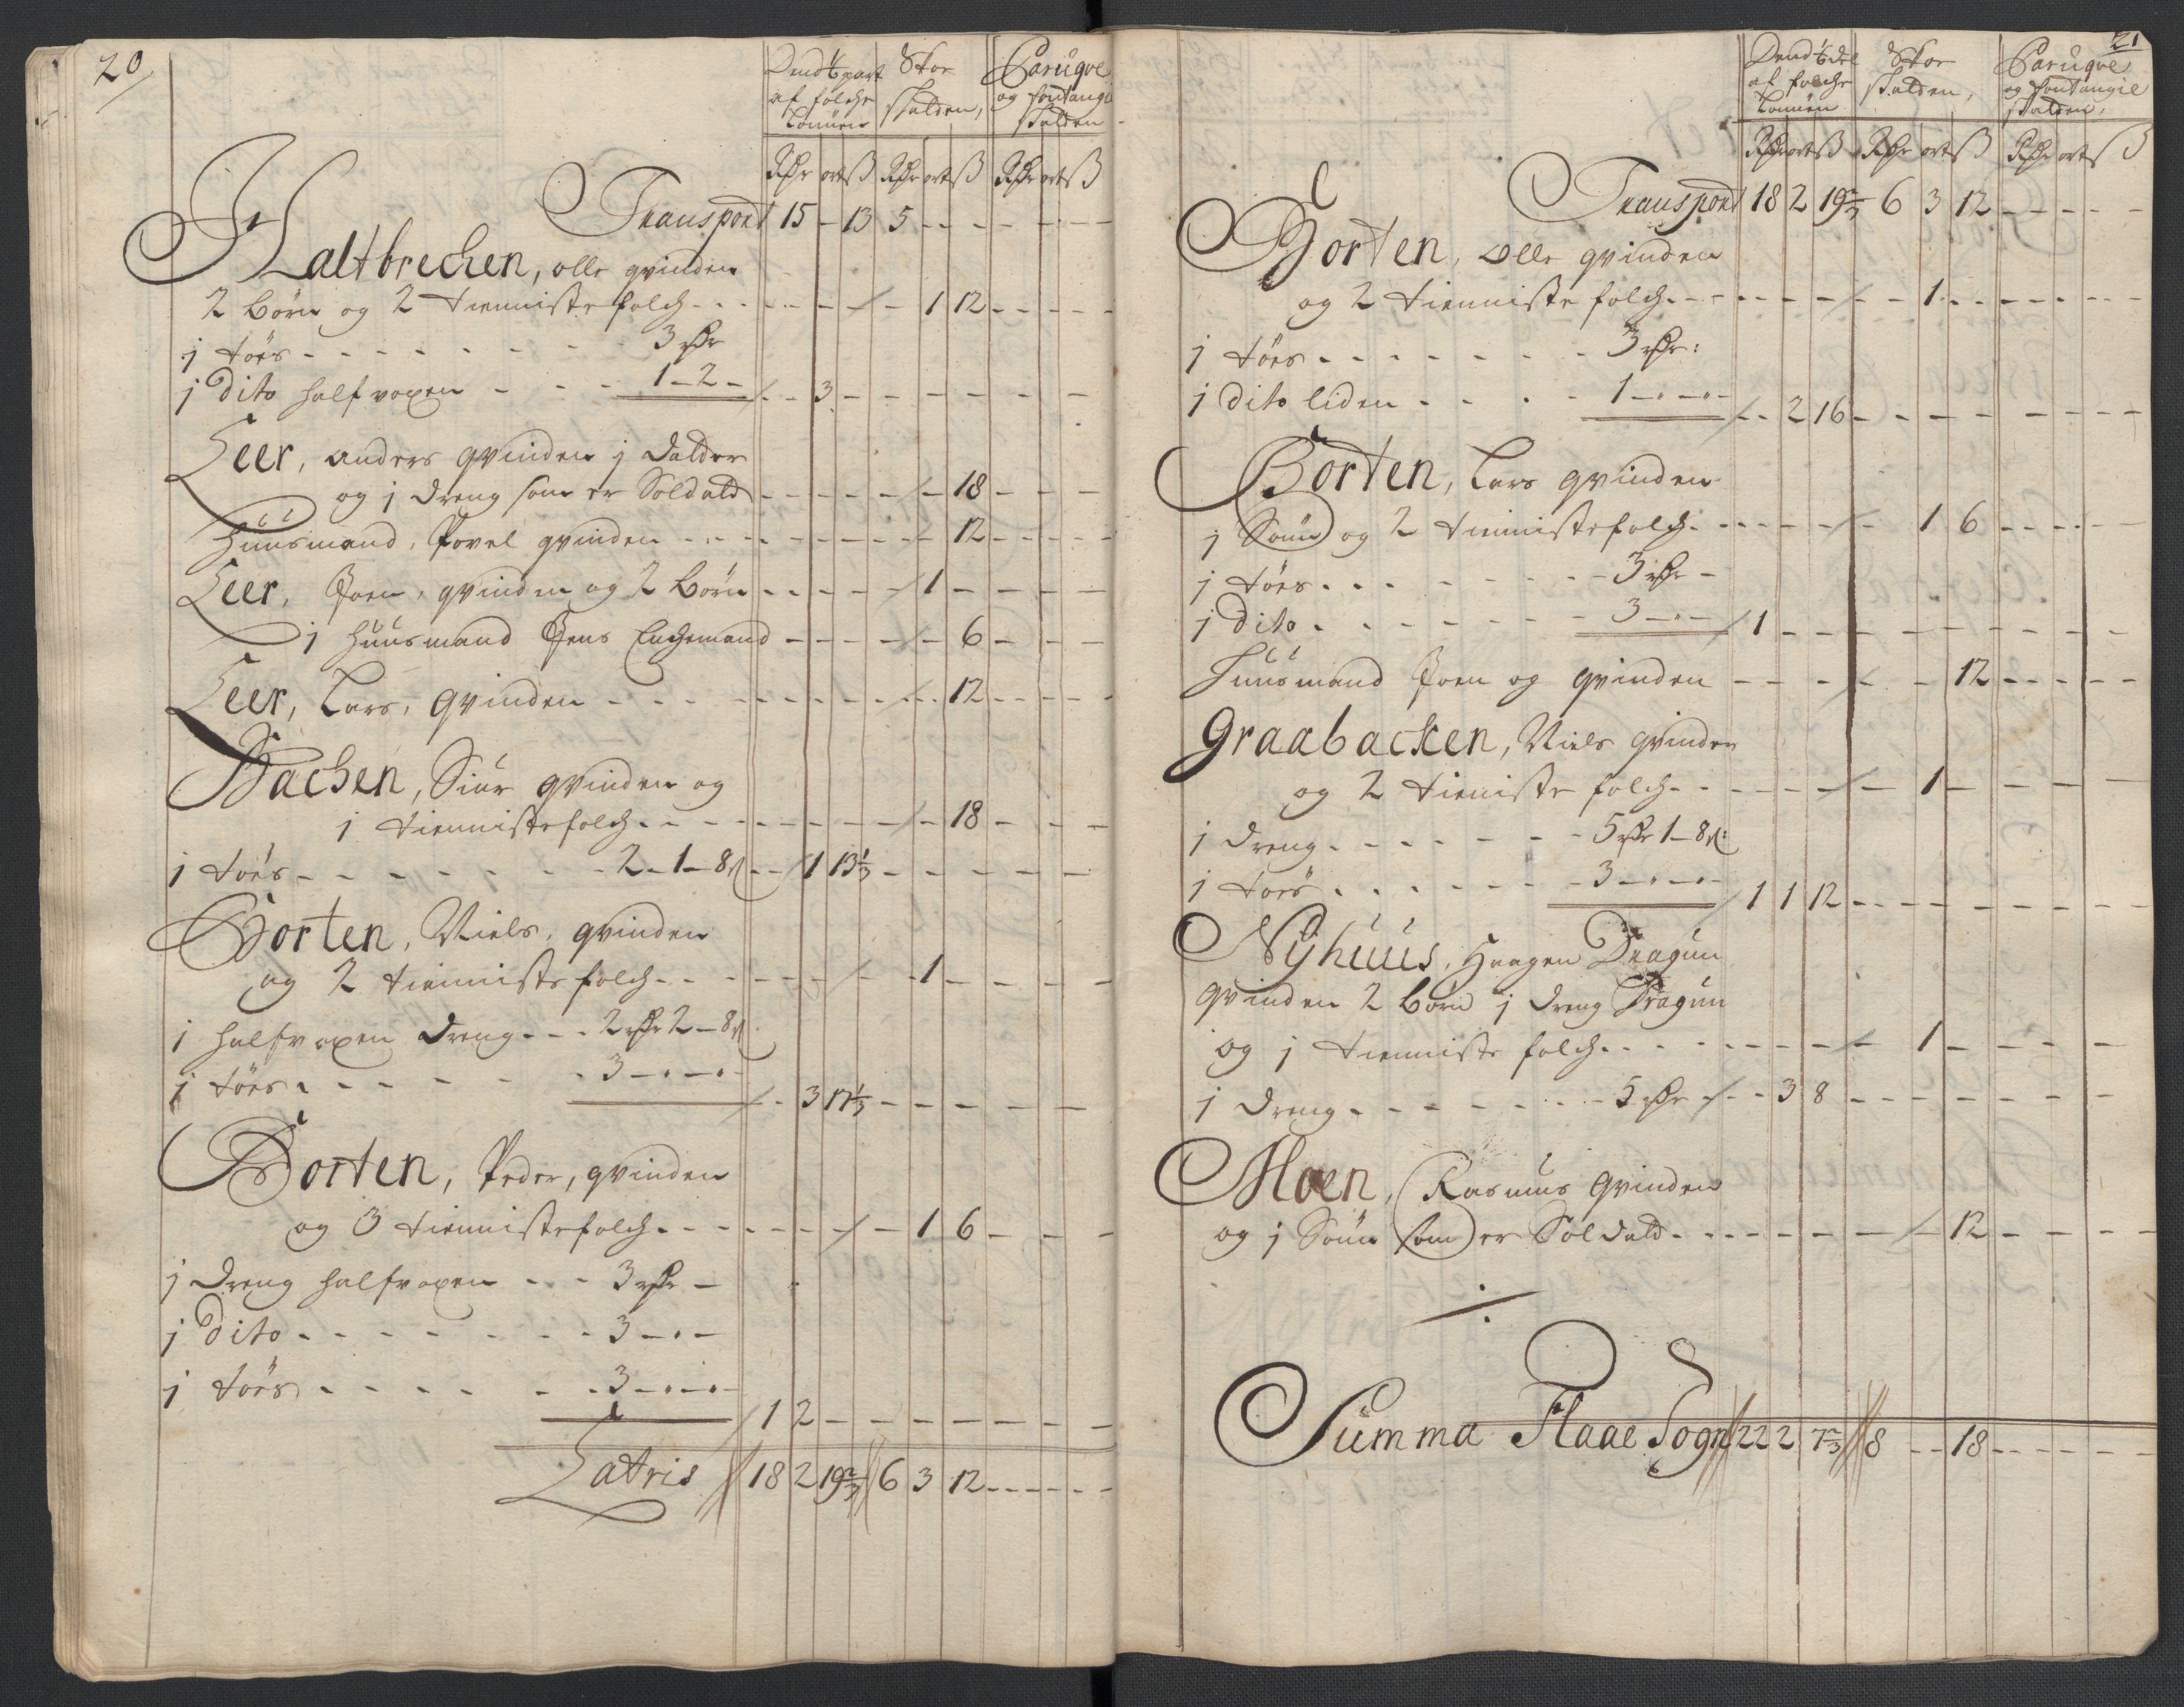 20
Dend 1/6 part af folche Lonnen | Skoe skatten, | Paruqve og fontangie skatten
Rdr ort ß | Rdr ort ß | Rdr ort ß
Transport 15 - 13 5 - - - - -
Haltbrechen, olle qvinden
2 börn og 2 tienniste folch - - - 1 12 - - -
j töes - - - 3 rdr
j dito half voxen - - - 1 - 2 - - - 3 - - - - - -
Leer, anders qvinden j datter
og j dreng som er Soldatt - - - 18 - - -
Huusmand, Povel qvinden - - - 12 - - -
Leer, Joen, qvinden og 2 börn - - - 1 - - - -
j Huusmand Jens Enchemand - - - 6 - - -
Leer, Lars, qvinden - - - 12 - - -
Bachen, Siur qvinden og
j tiennistefolch - - - 18 - - -
j töes - - - 2 - 1 - 8 ß - - 1 13 1/3 - - - - -
Borten, Niels, qvinden
og 2 tienniste folch - - - 1 - - - -
j halfvoxen dreng - - - 2 rdr 2 - 8 ß
j töes - - - 3 - - - - - 3 17 1/3 - - - - -
Borten, Peder, qvinden
og 3 tiennistefolch - - - 1 6 - - -
j dreng halfvoxen - - - 3 rdr -
j dito - - - 3 - -
j töes - - - 3 - - - 1 2 - - - - - - -
Latris 18 2 19 2/3 6 3 12 - - - -
21
Dend 1/6 del af folche Lonnen | Skoe skatten, | Paruqve og fontangie skatten,
Rdr ort ß | Rdr ort ß | Rdr ort ß
Transport 18 2 19 2/3 6 3 12 - - - -
Borten, olle qvinden
og 2 tienniste folch - - - 1 - - - -
j töes - - - 3 rdr:
j dito liden - - - 1 - - - - - 2 16 - - - - -
Borten, Lars qvinden
j Sönn og 2 tiennistefolch - - - 1 6 - - -
j töes - - - 3 rdr -
j dito - - - 3 - - - 1 - - - - - - -
Huusmand Joen og qvinden - - - 12 - - -
Graabacken, Niels qvinden
og 2 tieniste folch - - - 1 - - -
j dreng - - - 5 rdr 1 - 8 ß:
j töes - - - 3 - - - 1 1 12 - - - - -
Nÿhuus, Haagen Dragun
qvinden 2 börn j dreng Dragun
og j tienniste folch - - - 1 - - - -
j dreng - - - 5 rdr - - - 3 8 - - - - -
Moen, Rasmus qvinden
og j Sönn som er Soldatt - - - 12 - - -
Summa Flaae Sogn 22 2 7 2/3 8 - - 18 - - - -